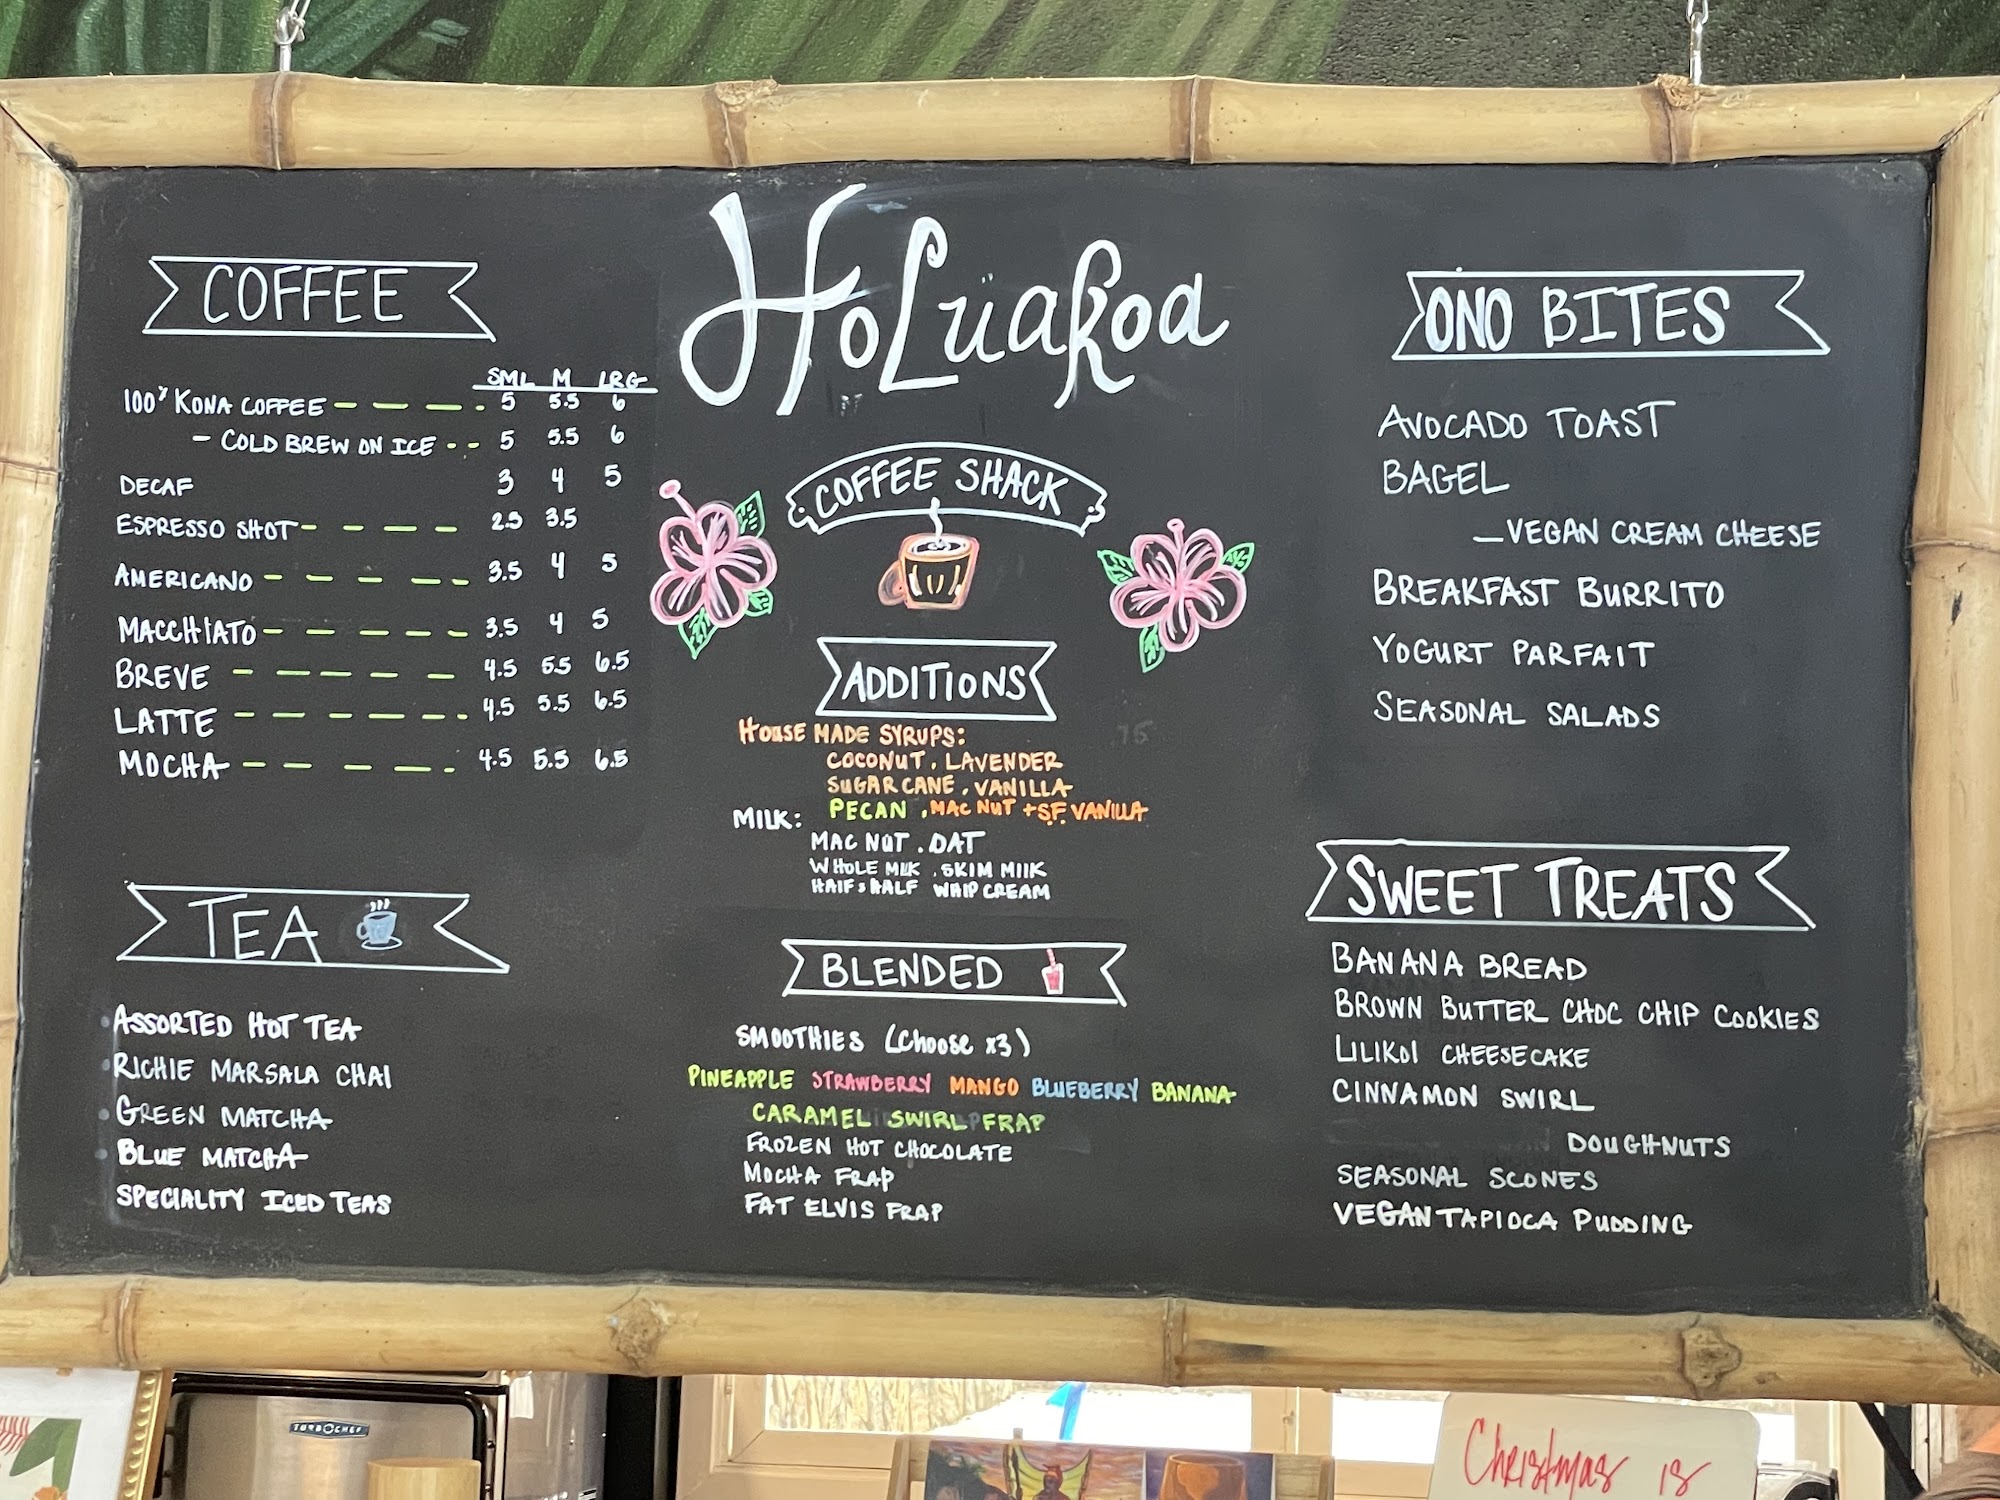 HoLuakoa
COFFEE SHACK
COFFEE
SML M LRG
100% KONA COFFEE 5 5.5 6
- COLD BREW ON ICE 5 5.5 6
DECAF 3 4 5
ESPRESSO SHOT 2.5 3.5
AMERICANO 3.5 4 5
MACCHIATO 3.5 4 5
BREVE 4.5 5.5 6.5
LATTE 4.5 5.5 6.5
MOCHA 4.5 5.5 6.5
TEA
ASSORTED HOT TEA
RICHIE MARSALA CHAI
GREEN MATCHA
BLUE MATCHA
SPECIALITY ICED TEAS
ADDITIONS
HOUSE MADE SYRUPS:
COCONUT . LAVENDER
SUGAR CANE . VANILLA
PECAN . MAC NUT + S.F. VANILLA
MILK:
MAC NUT . OAT
WHOLE MILK . SKIM MILK
HALF & HALF WHIP CREAM
BLENDED
SMOOTHIES (Choose x3)
PINEAPPLE STRAWBERRY MANGO BLUEBERRY BANANA
CARAMEL SWIRL FRAP
FROZEN HOT CHOCOLATE
MOCHA FRAP
FAT ELVIS FRAP
ONO BITES
AVOCADO TOAST
BAGEL
- VEGAN CREAM CHEESE
BREAKFAST BURRITO
YOGURT PARFAIT
SEASONAL SALADS
SWEET TREATS
BANANA BREAD
BROWN BUTTER CHOC CHIP COOKIES
LILIKOI CHEESECAKE
CINNAMON SWIRL
DOUGHNUTS
SEASONAL SCONES
VEGAN TAPIOCA PUDDING
TURBOCHEF
Christmas is